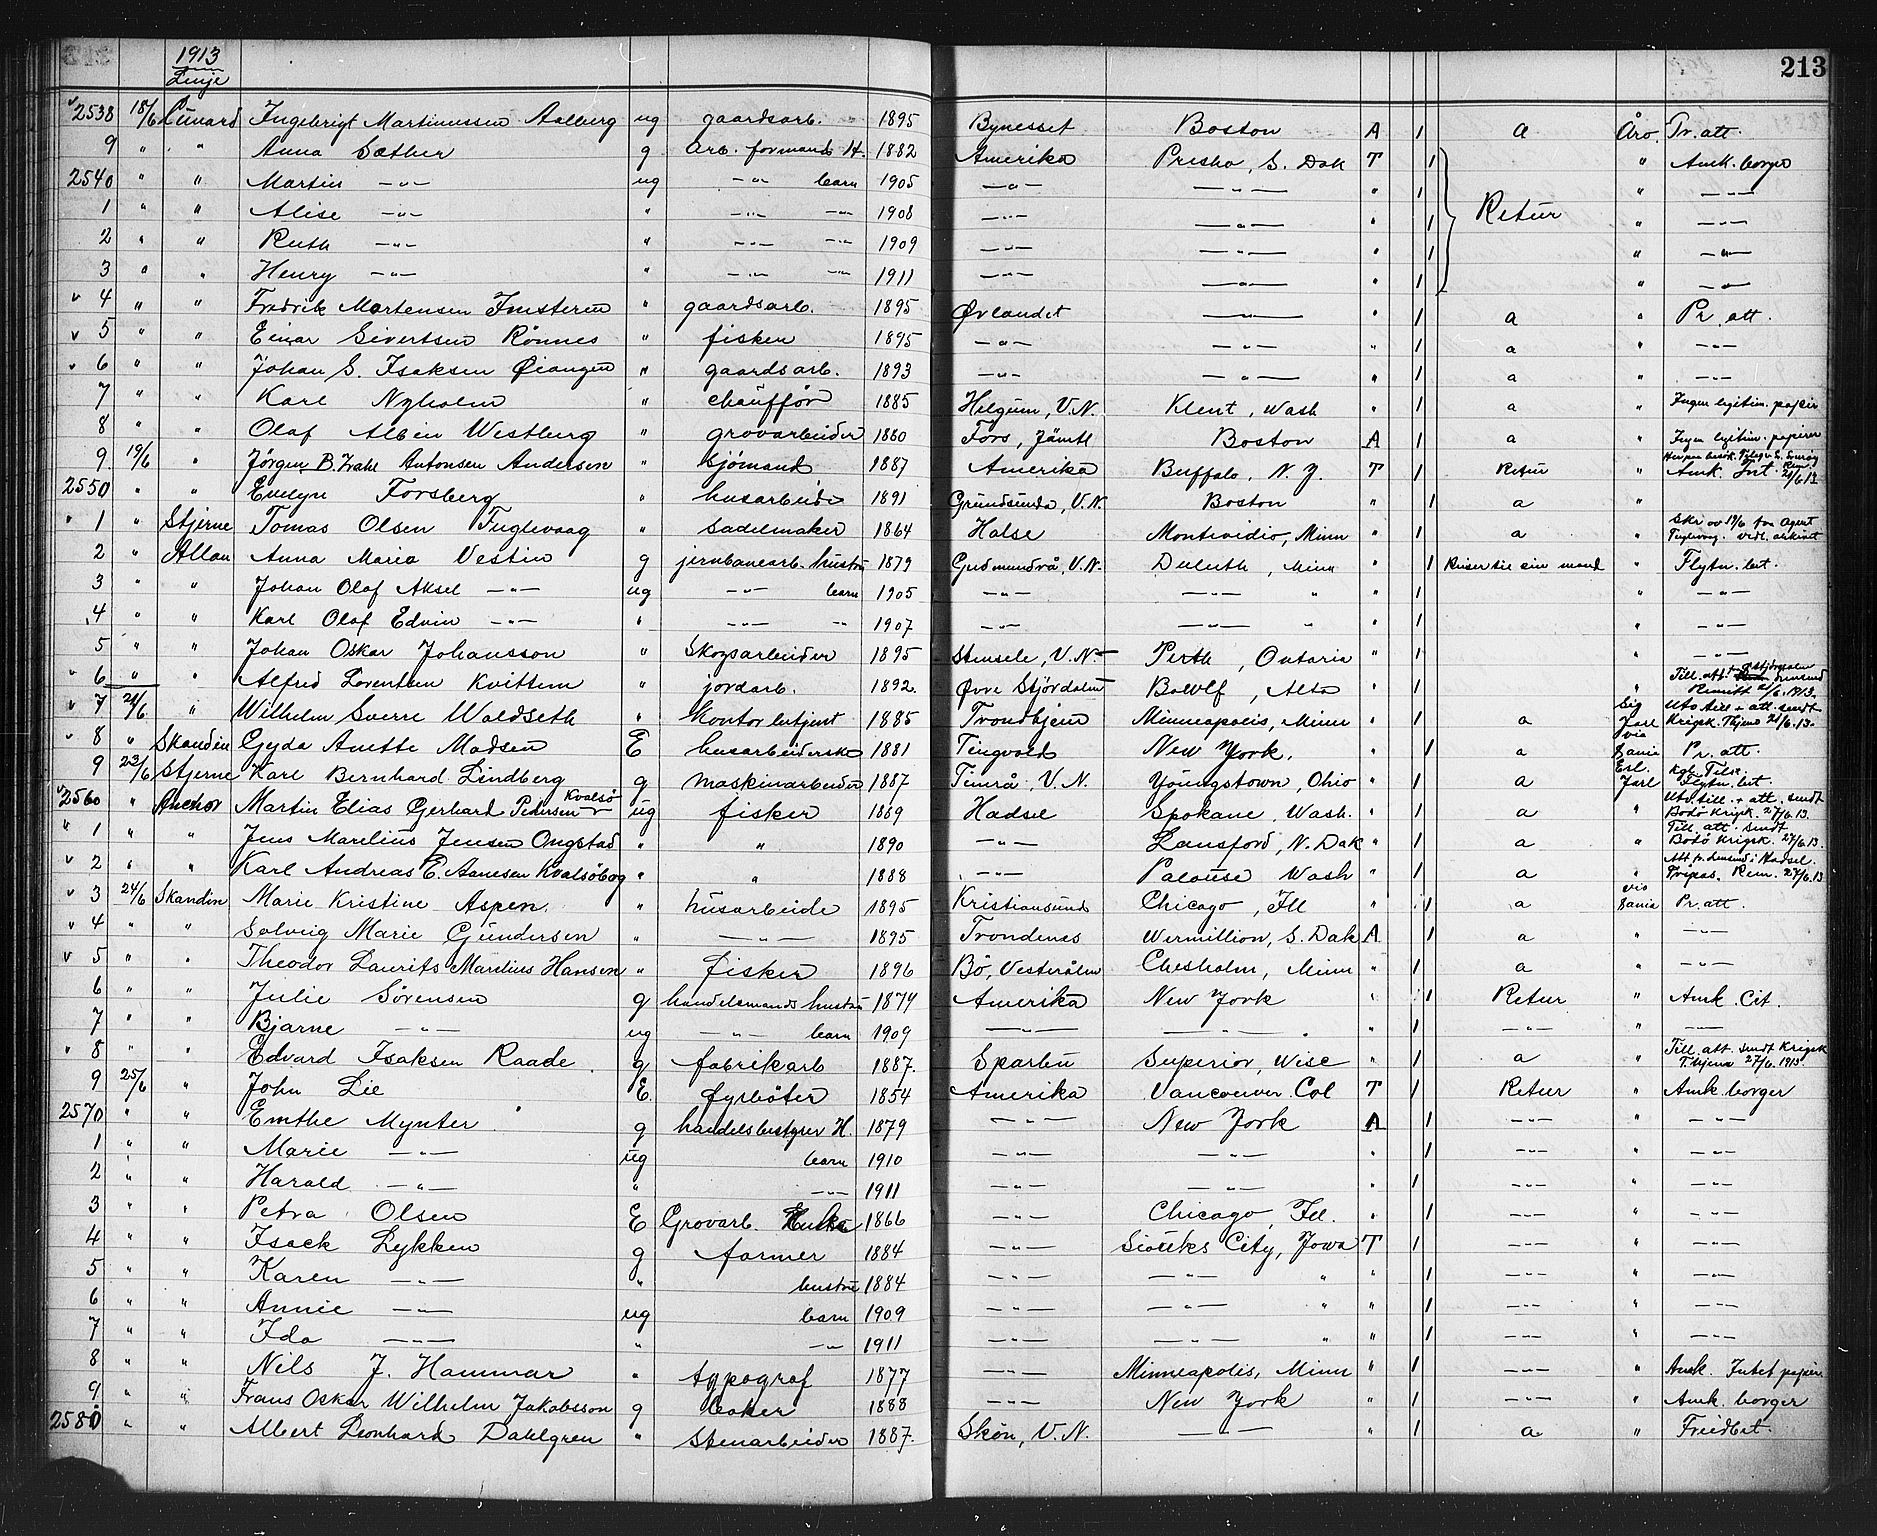 1913
Linje
213
2538 18/6 Cunard Ingebrigt Martinussen Aalberg ug gaardsarb. 1895 Bynesset Boston A 1 a Åro. Pr. att.
9 " " Anna Sæther g Arb. formands H. 1882 Amerika Presho, S. Dak T 1 Retur " Amk. borger
2540 " " Martin -"- ug -"- barn 1905 -"- -"- " 1 " -"-
1 " " Alise -"- " -"- -"- 1908 -"- -"- " 1 " -"-
2 " " Ruth -"- " -"- -"- 1909 -"- -"- " 1 " -"-
3 " " Henry -"- " -"- -"- 1911 -"- -"- 1 " -"-
v 4 " " Fredrik Martensen " gaardsarb. 1895 Ørlandet -"- " 1 a " Pr. att.
v 5 " " Einar Sivertsen Rönnes " fisker 1895 -"- -"- " 1 a " -"-
v 6 " " Johan S. Isaksen Øiangen " gaardsarb. 1893 -"- -"- " 1 a " -"-
7 " " Karl Nyholm " chaufför 1885 Helgum, V.N. Klent, Wash " 1 a " Ingen legitim. papir
8 " " Olaf Albin Westberg " grovarbeider 1860 Fors, Jämtl Boston A 1 a " Ingen legitim. papirer
9 19/6 " Jörgen B. Antonsen Andersen " sjömand 1887 Amerika Buffalo, N.Y. T 1 Retur " Amk. Int.
2550 " " Evelyn Forsberg " husarbeide 1891 Grundsunda, V.N. Boston " 1 a "
" 1 " Stjerne Tomas Olsen Fuglevaag " sadelmaker 1864 Halse Montevidio, Minn " 1 a " Skr av 19/6 fra Agent Fuglevaag. vedl. arkivet
2 " Allan Anna Maria Vestin g jernbanearb. hustru 1879 Gudmundrå, V.N. Duluth, Minn " 1 Reiser til sin mand " Flytn. bet.
3 " " Johan Olof Aksel -"- ug -"- barn 1905 -"- -"- " " 1 " -"-
4 " " Karl Olof Edvin -"- " -"- -"- 1907 -"- -"- " " 1 " -"-
5 " " Johan Oskar Johansson " Skogsarbeider 1895 Stensele, V.N. Perth, Ontario " 1 " -"-
" 6 " " Alfred Lorentsen Kvittem " jordarb. 1892. Øvre Stjördalen , Alta " 1 " Till. att.
v 7 21/6 " Wilhelm Sverre Waldseth " Kontorbetjent 1885 Trondhjem Minneapolis, Minn " 1 a Sig Jarl Utv till + att. sendt Krigsk. Thjem 21/6.13.
" 8 " Skandin Gyda Anette Madsen E husarbeiderske 1881 Tingvold New York. " 1 a via Pr. att.
9 23/6 Stjerne Karl Bernhard Lindberg g maskinarbeider 1887 Timrå, V.N. Youngstown, Ohio " 1 a Erl. Jarl Flytn. bet
v 2560 " Anchor Martin Elias Gerhard Pedersen Kvalsö ug fisker 1869 Hadsel Spokane, Wash. " 1 a " Utv. till. + att. sendt Bodö Krigsk. 27/6.13.
" 1 " " Jens Marelius Jensen Ongstad " " 1890 -"- Lansford, N. Dak " 1 a " Till. att. sendt Bodö Krigsk. 27/6.13.
v 2 " " Karl Andreas E. Aanesen Kvalsöberg " " 1888 -"- Palouse Wash " 1 a " Att fr. lensmd i Hadsel. Rem. 27/6.13
v 3 24/6 Skandin Marie Kristine Aspen " husarbeide 1895 Kristiansund Chicago, Ill " 1 a via Pr. att.
" 4 " " Solveig Marie Gundersen " -"- 1895 Trondenes Wermillion, S. Dak A 1 a " -"-
v 5 " " Theodor Laurits Marelius Hansen " fisker 1896 Bö, Vesterålen Chesholm, Minn " 1 a " -"-
6 " " Julie Sørensen g handelsmands hustru 1874 Amerika New York " 1 Retur " Amk. Cit.
7 " " Bjarne -"- ug -"- barn 1909 -"- -"- " " 1 -"- " -"-
" 8 " " Edvard Isaksen Raade g fabrikarb 1887. Sparbu Superior, Wisc " 1 a " Till. att. sendt Krigsk T.hjem 27/6.1913.
9 25/6 " John Lie E. fyrböter 1854 Amerika Vancouver. Col T 1 Retur " Amk. borger
2570 " " Emthe Mynter g handelsbestyrer H. 1879 -"- New York A 1 -"- " -"-
1 " " Marie -"- ug barn 1910 -"- -"- " 1 -"- " -"-
2 " " Harald -"- " -"- 1911 -"- -"- " 1 -"- " -"-
3 " " Petra Olsen E Grovarb. Enke 1866 -"- Chicago, Ill. " 1 -"- " -"-
4 " " Isack Lykken g farmer 1884 -"- Sioukes City, Jowa T 1 -"- " -"-
5 " " Karen -"- " hustru 1884 -"- -"- " " 1 -"- " -"-
6 " " Annie -"- ug barn 1909 -"- -"- " " 1 -"- " -"-
7 " " Ida -"- " -"- 1911 -"- -"- " " 1 -"- " -"-
8 " " Nils J. Hammar " typograf 1877 -"- Minneapolis, Minn " 1 -"- " Amk. Intet papir
9 " " Frans Oskar Wilhelm Jakobsson g baker 1888 -"- New York " 1 -"- " Amk. borger
2580 " " Albert Leonhard Dahlgren " Stenarbeider 1887. Skön, V.N. -"- " 1 a " Freidbet.